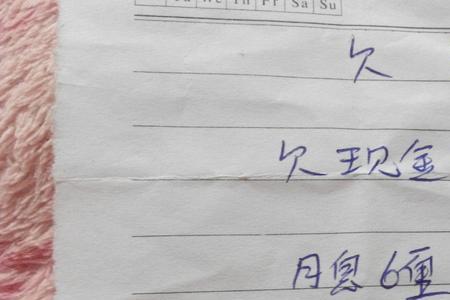 Tu We Th Fr Sa Su
欠
欠现金
月息6厘